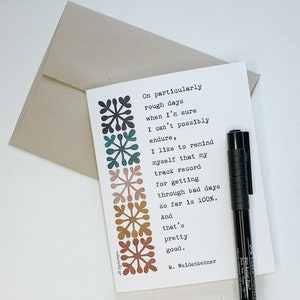 On particularly
rough days
when I'm sure
I can't possibly
endure,
I like to remind
myself that my
track record
for getting
through bad days
so far is 100%.
And
that's
pretty
good.
M. Weidenbenner